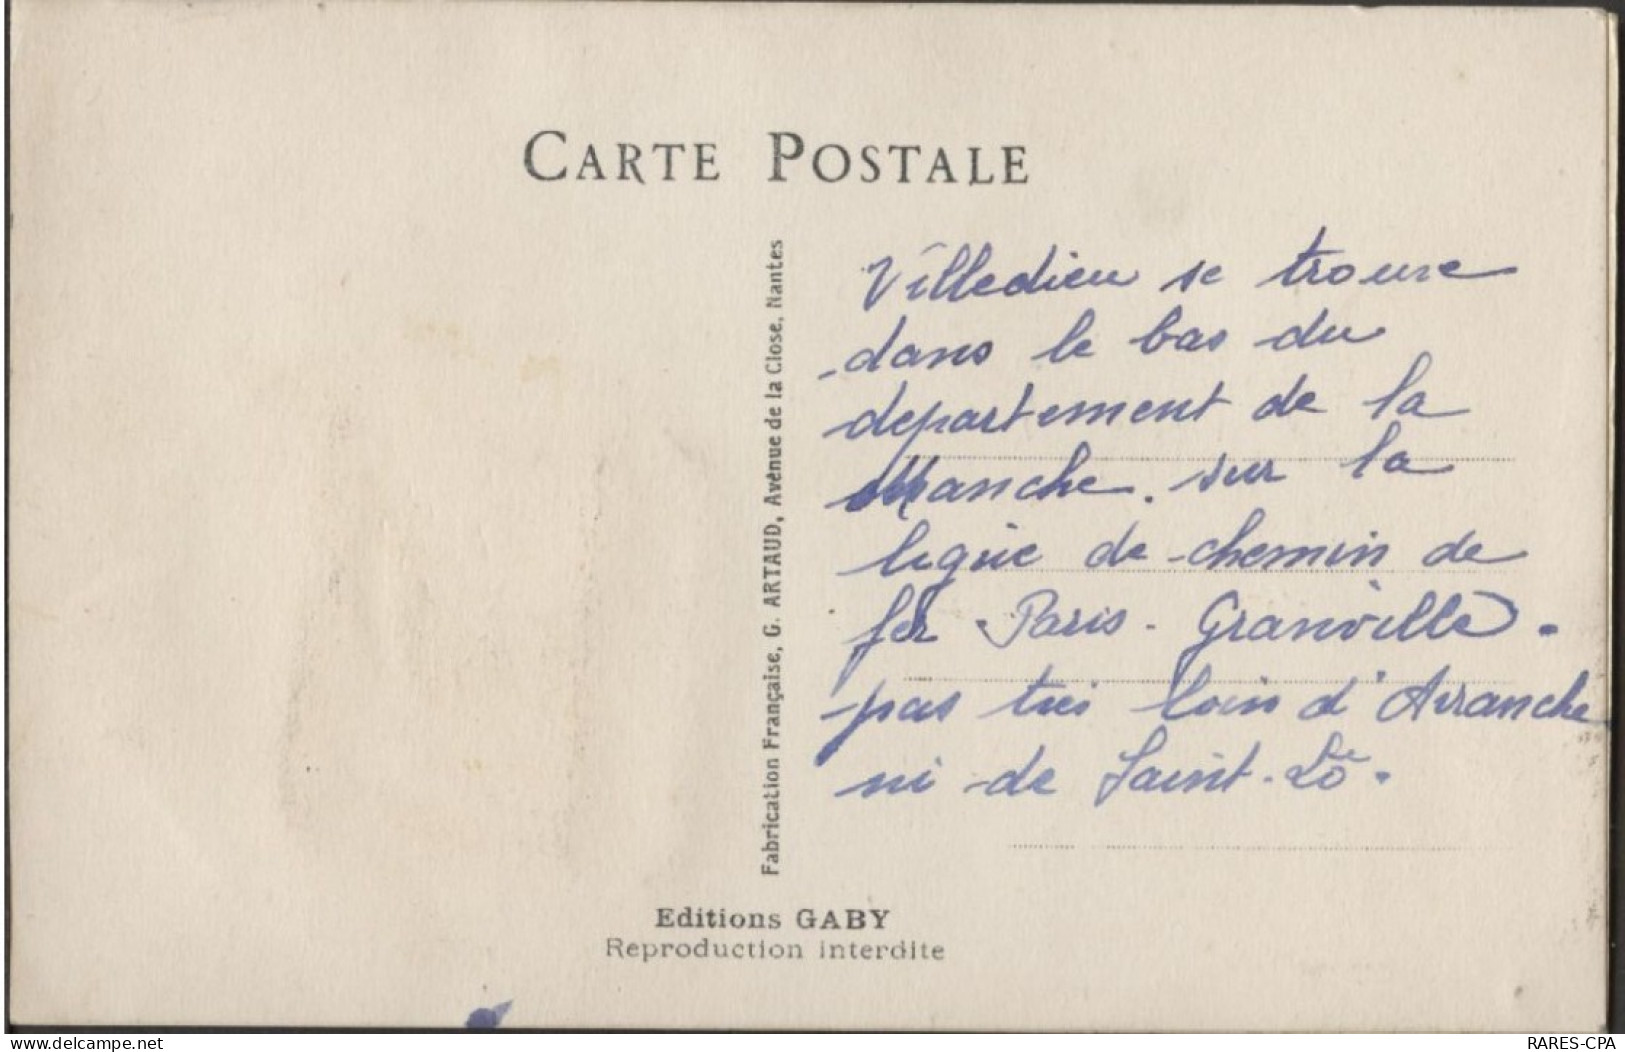 CARTE POSTALE
Fabrication Française, G. ARTAUD, Avenue de la Close, Nantes
Villedieu se trouve
dans le bas du
departement de la
Manche. sur la
ligne de chemin de
fer Paris - Granville.
pas très loin d'Avranche
ni de Saint-Lô.
Editions GABY
Reproduction interdite
delcampe.net
RARES-CPA